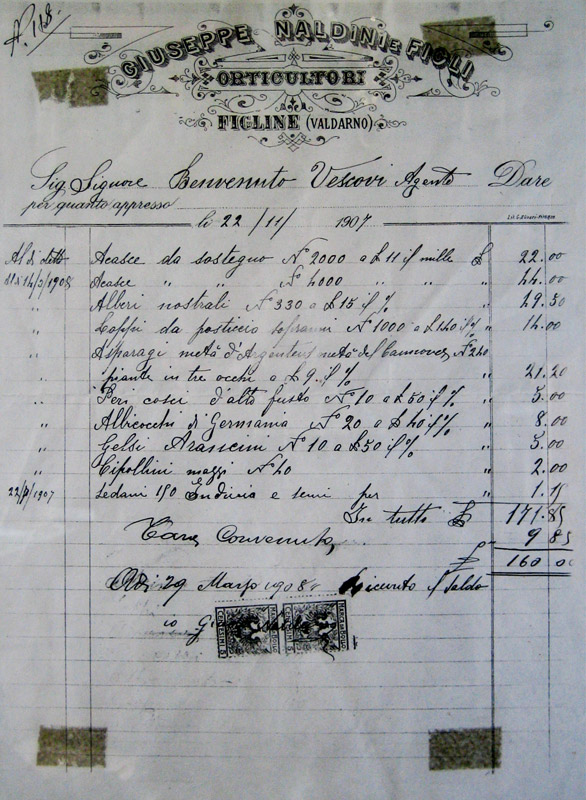 N. 118.
GIUSEPPE NALDINI E FIGLI
ORTICULTORI
FIGLINE (VALDARNO)
Sig. Signore Benvenuto Vescovi Agente Dare
per quanto appresso
li 22/11/ 1907
Al di detto Acasce da sostegno N° 2000 a £ 11 il mille £ 22.00
Acasce " " N° 4000 " " " 44.00
" Alberi nostrali N° 330 a £ 15 il % "
" da posticcio N° 1000 a £ 1.40 il % " 14.00
" Asparagi metà d'Argenteuil metà del N° 240
piante in tre occhi a £ 9 il % " 21.20
" Peri d'alto fusto N° 10 a £ 50 il % " 5.00
" Albicocchi di Germania N° 20 a £ 40 il % " 8.00
" Gelsi N° 10 a £ 50 il % " 5.00
" Cipollini mazzi N° 40 " 2.00
Sedani 150 Indivia e semi per "
In tutto £ 171.85
Convenuta 9 85
£ 160 00
Adi 29 Marzo 1908 Ricevuto il Saldo
io
MARCA DA BOLLO
CENTESIMI 5
CENTESIMI 5
MARCA DA BOLLO